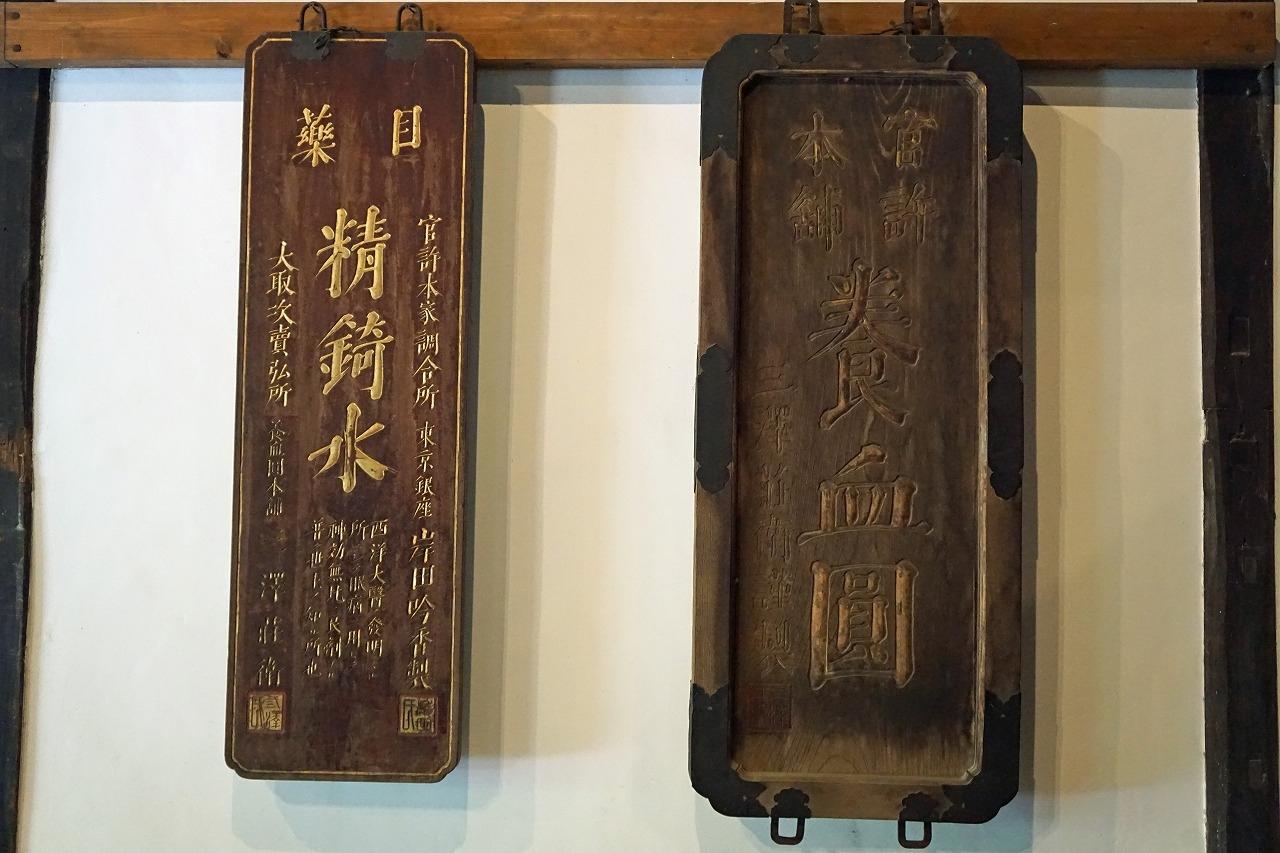 目藥
官許本家調合所 東京銀座 岸田吟香製
精錡水
西洋大醫發明
眼病
神効無比
大取次賣弘所 養血圓本舗 澤荘衛
官許
本舗
養血圓
三澤荘衛謹製